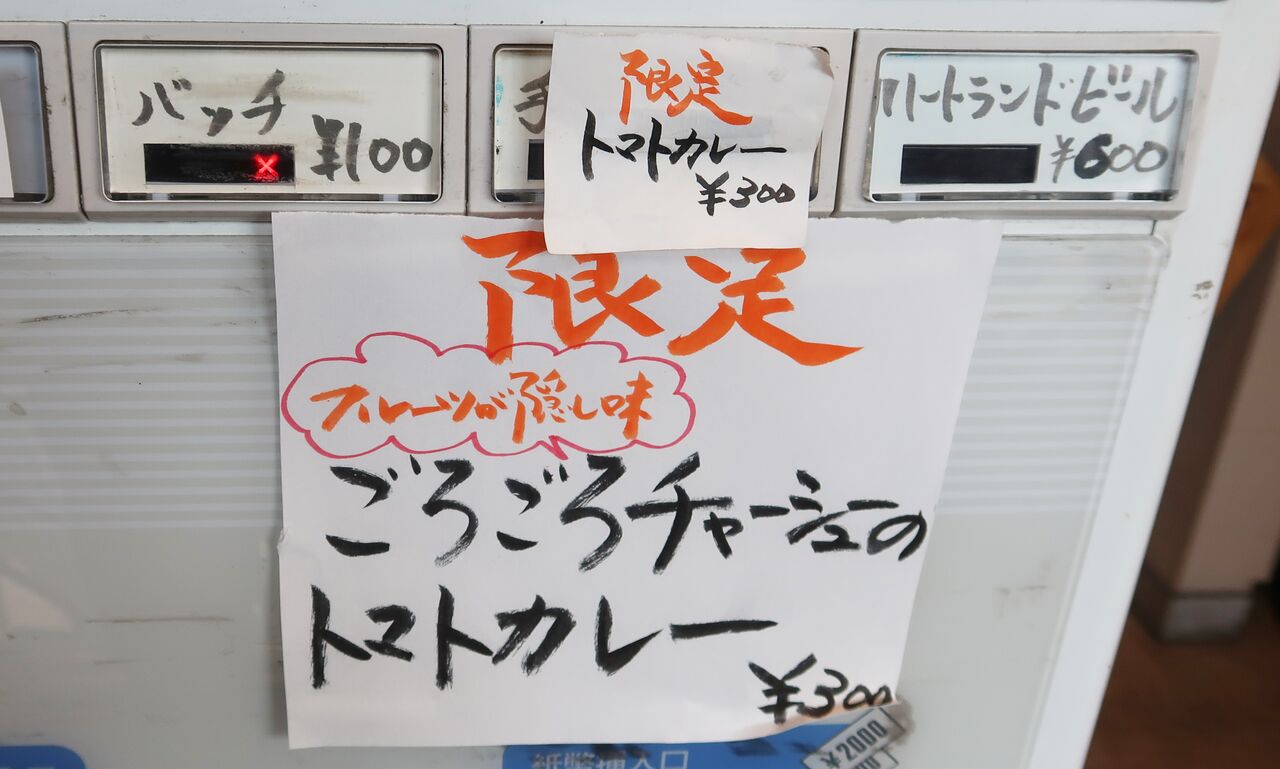 バッチ
¥100
手
限定
トマトカレー
¥300
ハートランドビール
¥600
限定
フルーツが隠し味
ごろごろチャーシューの
トマトカレー
¥300
¥2000
紙幣挿入口